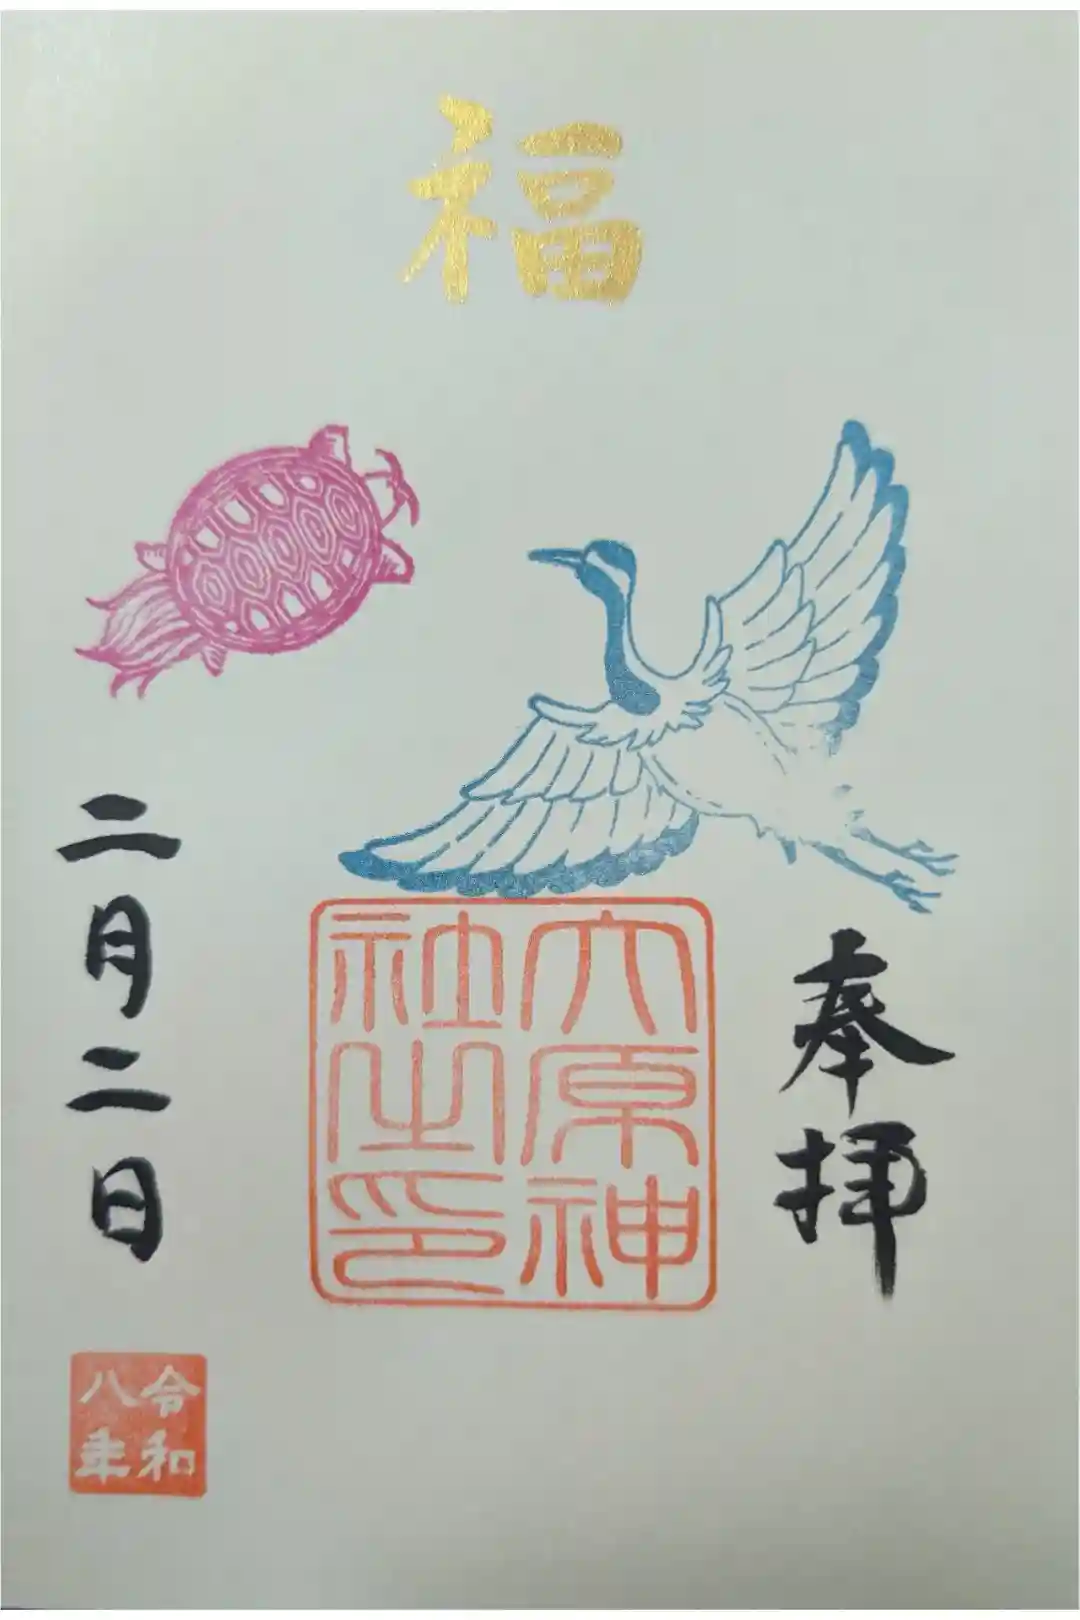 福
奉拝
大原神
社之印
二月二日
令和
八年